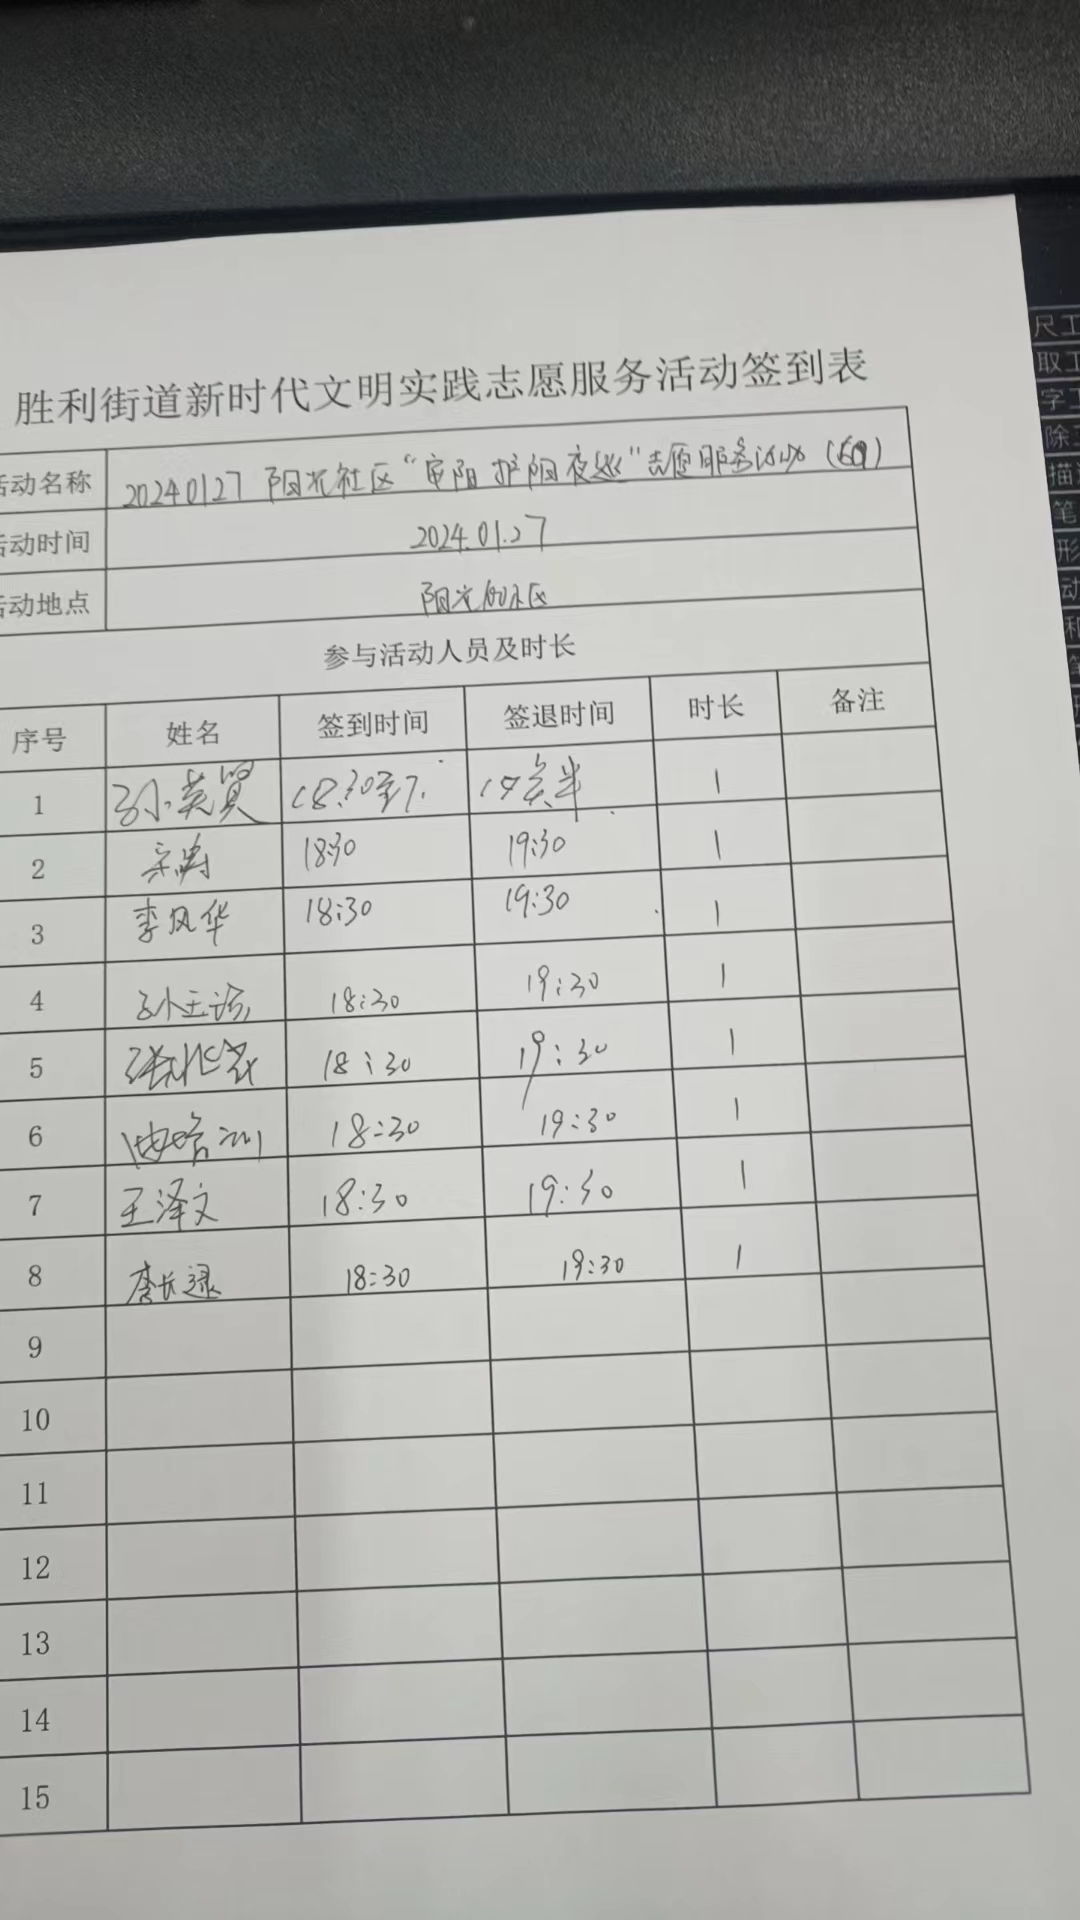 胜利街道新时代文明实践志愿服务活动签到表
活动名称 20240127 阳光社区“ 护阳夜巡”志愿服务活动
活动时间 2024.01.27
活动地点 阳光100小区
参与活动人员及时长
序号 姓名 签到时间 签退时间 时长 备注
1 孙英贤 18:30 1
2 18:30 19:30 1
3 李风华 18:30 19:30 1
4 18:30 19:30 1
5 18:30 19:30 1
6 18:30 19:30 1
7 王泽文 18:30 19:30 1
8 18:30 19:30 1
9
10
11
12
13
14
15
尺工
取工
字工
除工
描
笔
形
动
和
笔